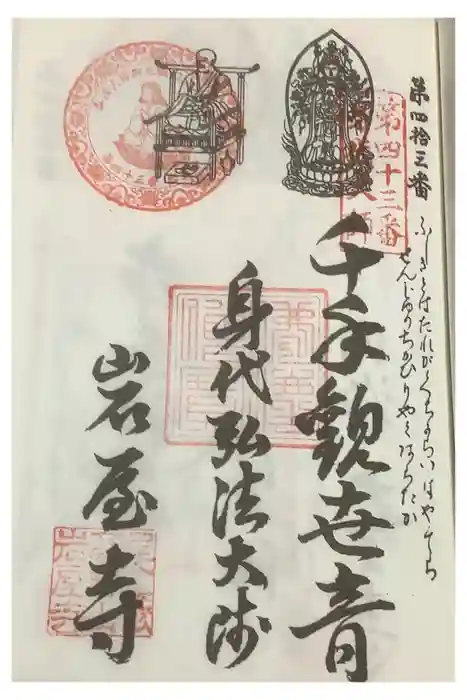 第四拾三番
ふしきとはたれがくちよりいはやてら
せんじゆのちかひ
あらたか
第四十三番
大師
千手觀世音
身代弘法大師
岩屋寺